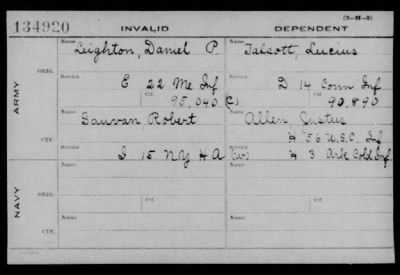 (3-H-3)
134920 INVALID DEPENDENT
Name Name
Leighton, Daniel P. Talcott, Lucius
ORIG.
Service Service
E 22 Me Inf D 14 Conn Inf
Ctf. Ctf.
95.040 (C) 90.890
ARMY
Name Name
Sauvan Robert Allen, Justus
H 56 U.S.C. Inf
CTF.
Service
I 15 N.Y H A (W) 3 Ark Cold Inf
Name Name
ORIG.
Service Ctf. Service Ctf.
NAVY
Name Name
CTF.
Service Service